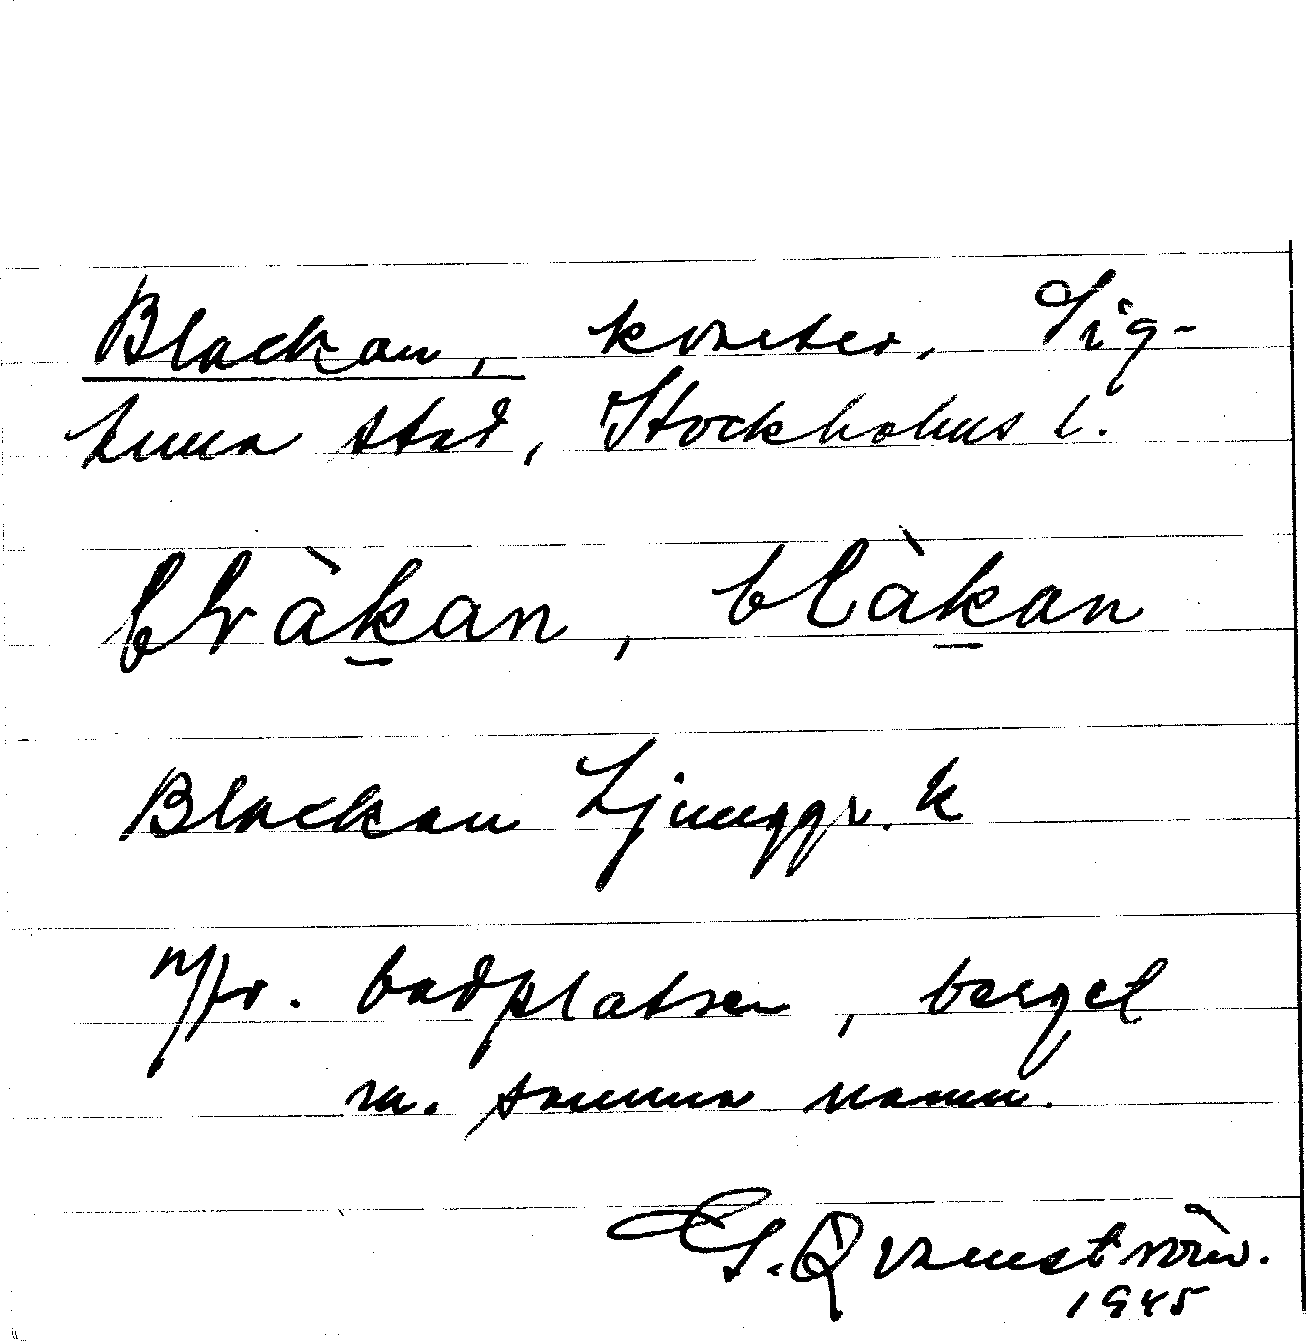 Blackan, kvarter, Sig-
tuna stad, Stockholms l.
blràkan, blàkan
Blackan Ljunggr. k
n/fr. badplatsen, berget
m. samma namn.
G. Qvarnström.
1945